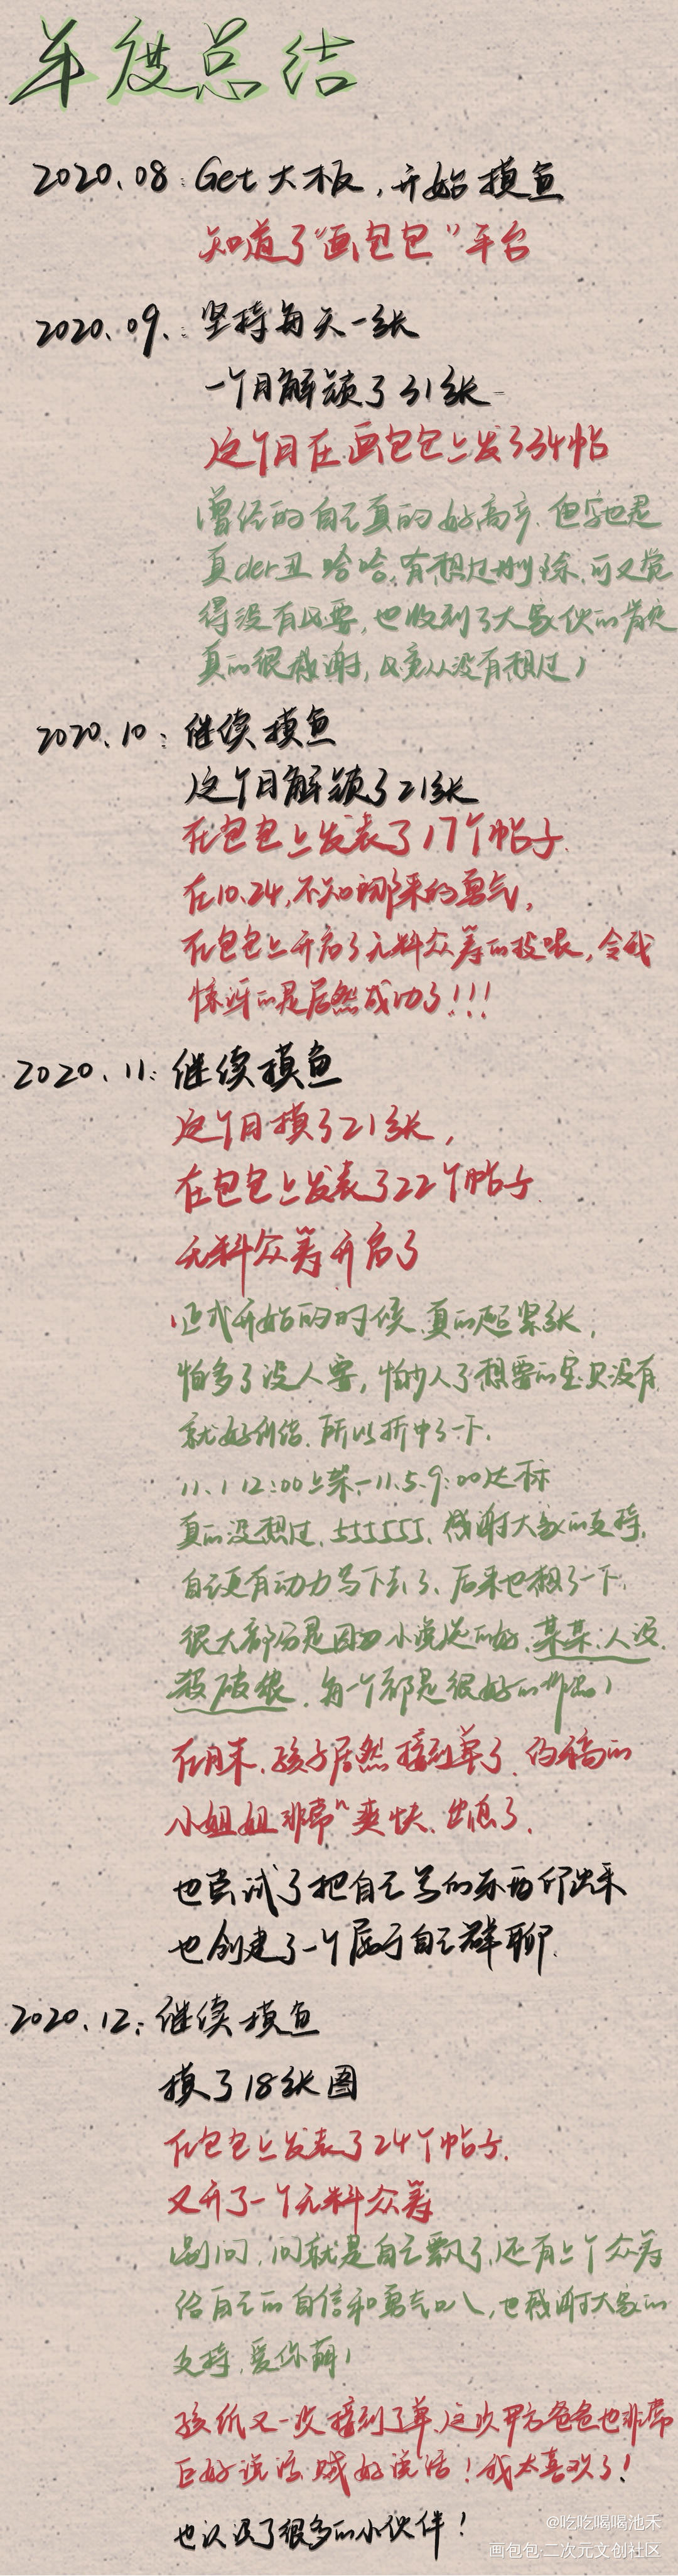 年度总结
2020.08：Get大板，开始摸鱼
知道了“画包包”平台
2020.09.：坚持每天一张
一个月解锁了31张
这个月在画包包上发了34帖
(曾经的自己真的好高产.但字也是
真der丑 哈哈.有想过删除.可又觉
得没有必要,也收到了大家伙的肯定
真的很感谢,毕竟从没有想过)
2020.10：继续摸鱼
这个月解锁了21张
在包包上发表了17个帖子.
在10.24,不知哪来的勇气,
在包包上开启了无料众筹的投喂,令我
惊讶的是居然成功了!!!
2020.11：继续摸鱼
这个月摸了21张,
在包包上发表了22个帖子
无料众筹开启了
(正式开始的时候.真的超紧张,
怕多了没人要,怕少人了想要的宝贝没有
就好纠结.所以折中了一下.
11.1 12:00上架—11.5.9:00达标
真的没想过.555555.感谢大家的支持.
自己更有动力写下去了.后来也想了一下.
很大部分是因为小说选的好.某某.人没.
杀破狼.每一个都是很好的作品)
在月末.孩子居然接到单了.约稿的
小姐姐非常ⁿ爽快.出息了.
也尝试了把自己写的东西印出来
也创建了一个属于自己群聊.
2020.12：继续摸鱼
摸了18张图
在包包上发表了24个帖子.
又开了一个无料众筹
(别问.问就是自己飘了.还有上个众筹
给自己的自信和勇气叭,也感谢大家的
支持.爱你萌)
孩纸又一次接到了单.这次甲方爸爸也非常
巨好说话.贼好说话!我太喜欢了!
也认识了很多的小伙伴!
@吃吃喝喝池禾
画包包·二次元文创社区